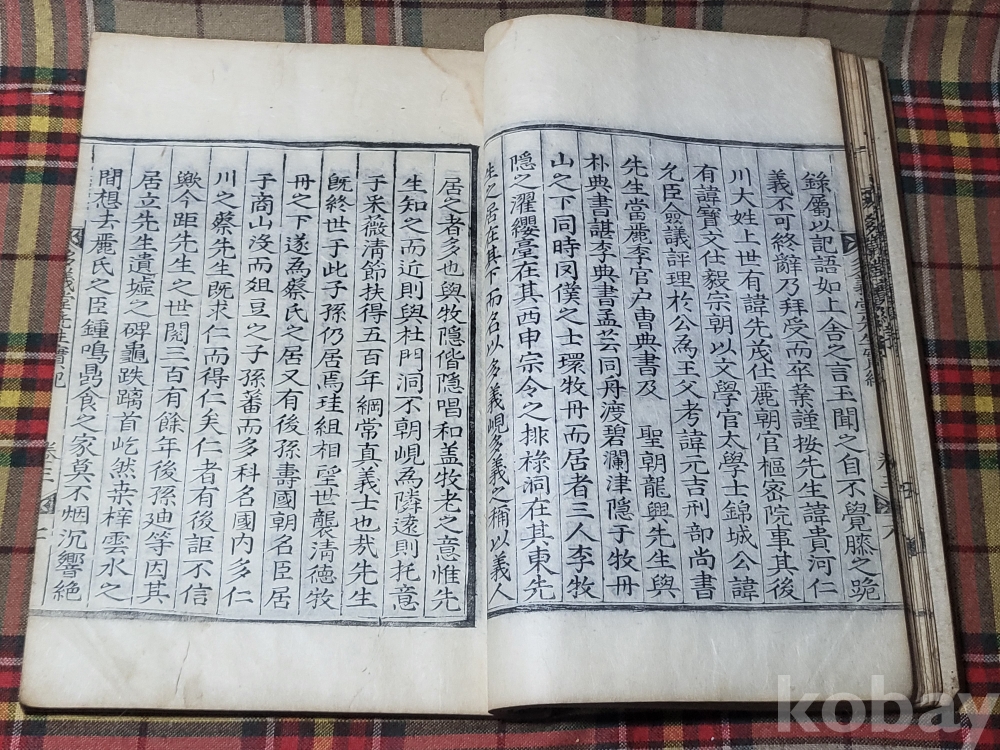 錄屬以記語如上舍之言玉聞之自不覺膝之跪
義不可終辭乃拜受而卒業謹按先生諱貴河仁
川大姓上世有諱先茂仕麗朝官樞密院事其後
有諱寶文仕毅宗朝以文學官太學士錦城公諱
允臣僉議評理於公為王父考諱元吉刑部尚書
先生當麗季官户曹典書及 聖朝龍興先生與
朴典書諶李典書孟芸同舟渡碧瀾津隱于牧丹
山之下同時罔僕之士環牧丹而居者三人李牧
隱之濯纓臺在其西申宗令之排祿洞在其東先
生之居在其下而名以多義峴多義之稱以義人
居之者多也與牧隱偕隱唱和盖牧老之意惟先
生知之而近則與杜門洞不朝峴為隣遠則托意
于采薇清節扶得五百年綱常真義士也㢤先生
旣終世于此子孫仍居焉珪組相望世襲清德牧
丹之下遂為蔡氏之居又有後孫壽國朝名臣居
于商山沒而俎豆之子孫蕃而多科名國内多仁
川之蔡先生既求仁而得仁矣仁者有後詎不信
歟今距先生之世閱三百有餘年後孫廸等因其
居立先生遺墟之碑龜趺螭首屹然桒梓雲水之
間想去麗氏之臣鍾鳴鼎食之家莫不烟沉響絶
多義堂先生實紀
卷三
kobay